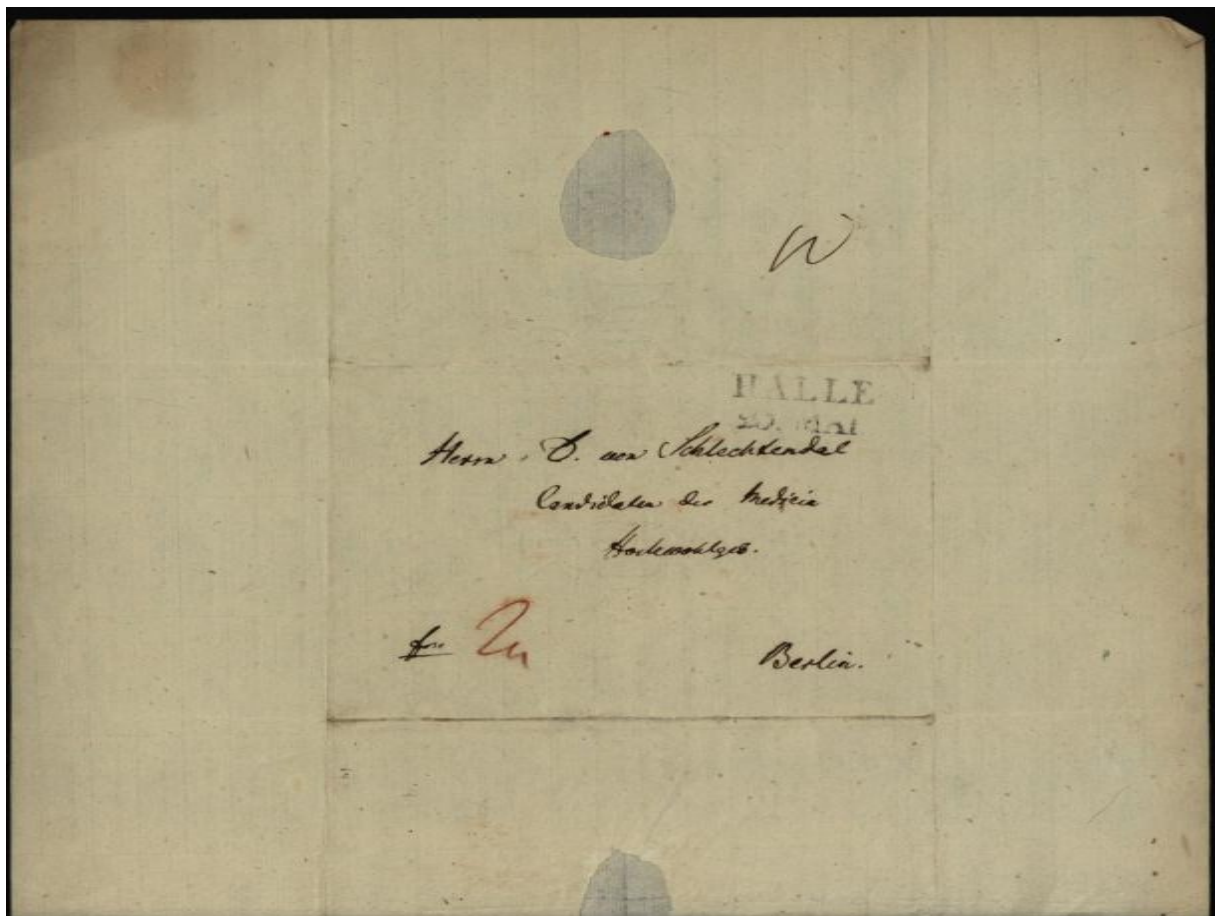 HALLE
MAI
Herrn D. von Schlechtendal
Candidaten der Medicin
Hochwohlgeb.
Berlin.